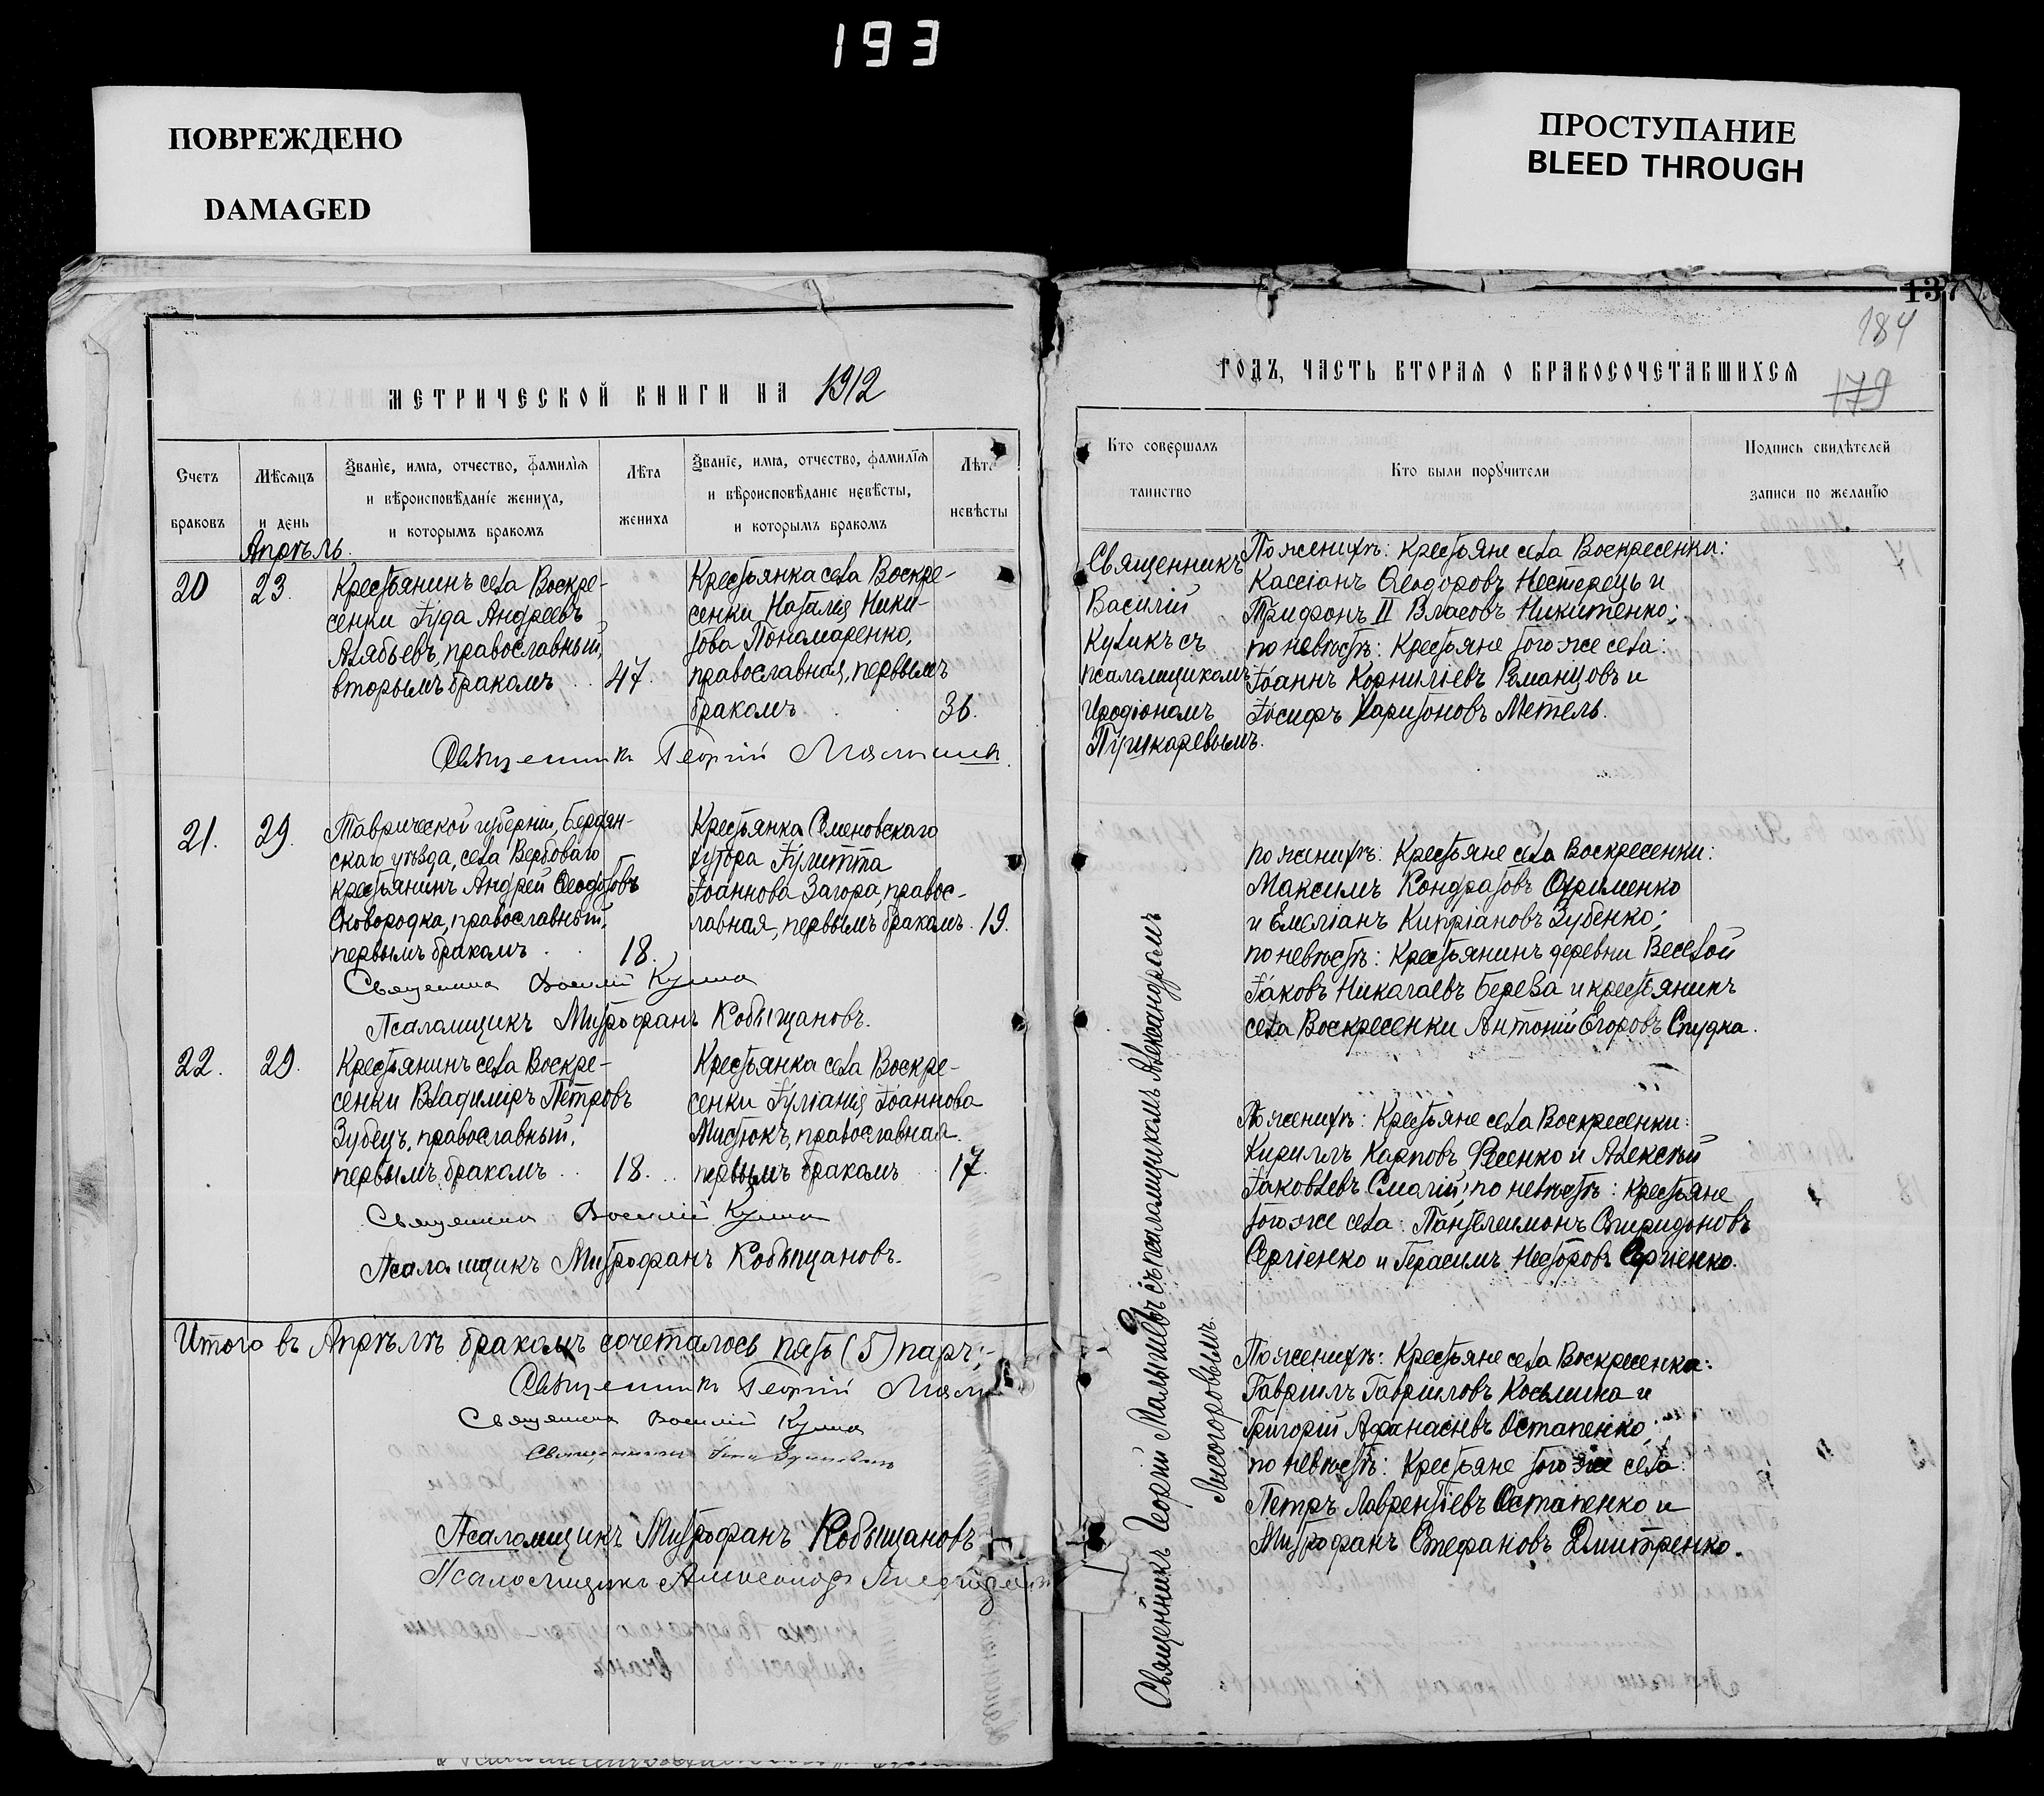 193
ПОВРЕЖДЕНО
DAMAGED
ПРОСТУПАНИЕ
BLEED THROUGH
МЕТРИЧЕСКОЙ КНИГИ НА 1912
Счетъ
браковъ
Мѣсяцъ
и день
Званіе, имя, отчество, фамилія
и вѣроисповѣданіе жениха,
и которымъ бракомъ
Лѣта
жениха
Званіе, имя, отчество, фамилія
и вѣроисповѣданіе невѣсты,
и которымъ бракомъ
Лѣта
невѣсты
Апрѣль.
20
23.
Крестьянинъ села Воскре-
сенки Іуда Андреевъ
Алябьевъ, православный,
вторымъ бракомъ
47.
Крестьянка села Воскре-
сенки Наталія Ники-
това Пономаренко,
православная, первымъ
бракомъ
36.
Священникъ Георгій
21.
29.
Таврической губерніи, Бердян-
скаго уѣзда, села Вербоваго
крестьянинъ Андрей Ѳеодотовъ
Сковородка, православный,
первымъ бракомъ
18.
Крестьянка Семеновскаго
хутора Іулитта
Іоаннова Загора, правос-
лавная, первымъ бракомъ.
19.
Священникъ Василій
Псаломщикъ Митрофанъ Кобыщановъ.
22.
29.
Крестьянинъ села Воскре-
сенки Владиміръ Петровъ
Зубецъ, православный,
первымъ бракомъ
18.
Крестьянка села Воскре-
сенки Іуліанія Іоаннова
Мистюкъ, православная
первымъ бракомъ
17.
Священникъ Василій
Псаломщикъ Митрофанъ Кобыщановъ.
Итого въ Апрѣлѣ бракомъ сочеталось пять (5) паръ;-
Священникъ Георгій
Священникъ Василій
Священникъ
Псаломщикъ Митрофанъ Кобыщановъ
Псаломщикъ Александръ
137
184
179
ГОДЪ, ЧАСТЬ ВТОРАЯ О БРАКОСОЧЕТАВШИХСЯ
Кто совершалъ
таинство
Кто были поручители
Подпись свидѣтелей
записи по желанію
Священникъ
Василій
Куликъ съ
псаломщикомъ
Иродіономъ
Пушкаревымъ.
По женихѣ: Крестьяне села Воскресенки:
Кассіанъ Ѳеодоровъ Нестерецъ и
Трифонъ II Власовъ Никитенко;
по невѣстѣ: Крестьяне того же села:
Іоаннъ Корниліевъ Романцовъ и
Іосифъ Харитоновъ Метель.
по женихѣ: Крестьяне села Воскресенки:
Максимъ Кондратовъ Охрименко
и Емеліанъ Кипріановъ Зубенко;
по невѣстѣ: Крестьянинъ деревни Веселой
Іаковъ Николаевъ Береза и крестьянинъ
села Воскресенки Антоній Егоровъ Спудка.
По женихѣ: Крестьяне села Воскресенки:
Кириллъ Карповъ Фесенко и Алексѣй
Іаковлевъ Смагій; по невѣстѣ: крестьяне
того же села: Пантелеимонъ Спиридоновъ
Сергіенко и Герасимъ Несторовъ Сергіенко.
По женихѣ: Крестьяне села Воскресенка:
Гавріилъ Гавриловъ Косьмина и
Григорій Афанасіевъ Остапенко;
по невѣстѣ: Крестьяне того же села:
Петръ Лаврентіевъ Остапенко и
Митрофанъ Стефановъ Дмитренко.
Священникъ Георгій Малышевъ съ псаломщикомъ Александромъ
Лисогоровымъ.